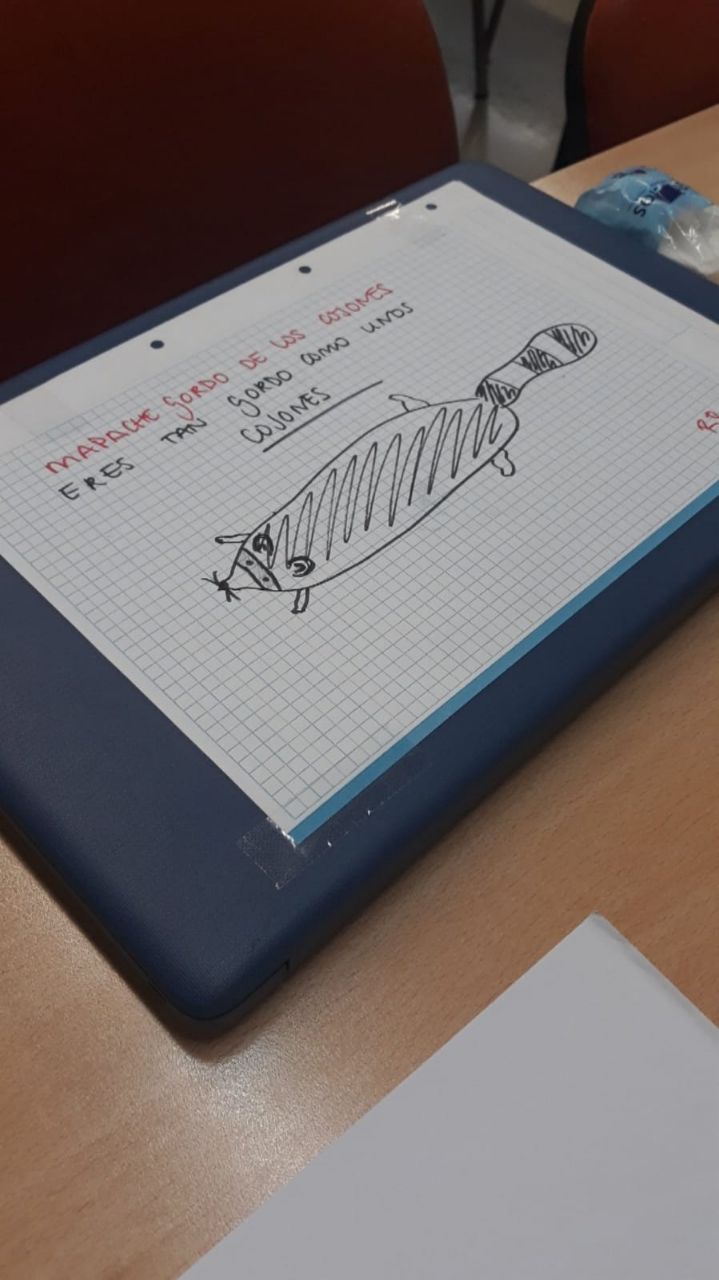 MAPACHE GORDO DE LOS COJONES
ERES TAN GORDO COMO UNOS
COJONES